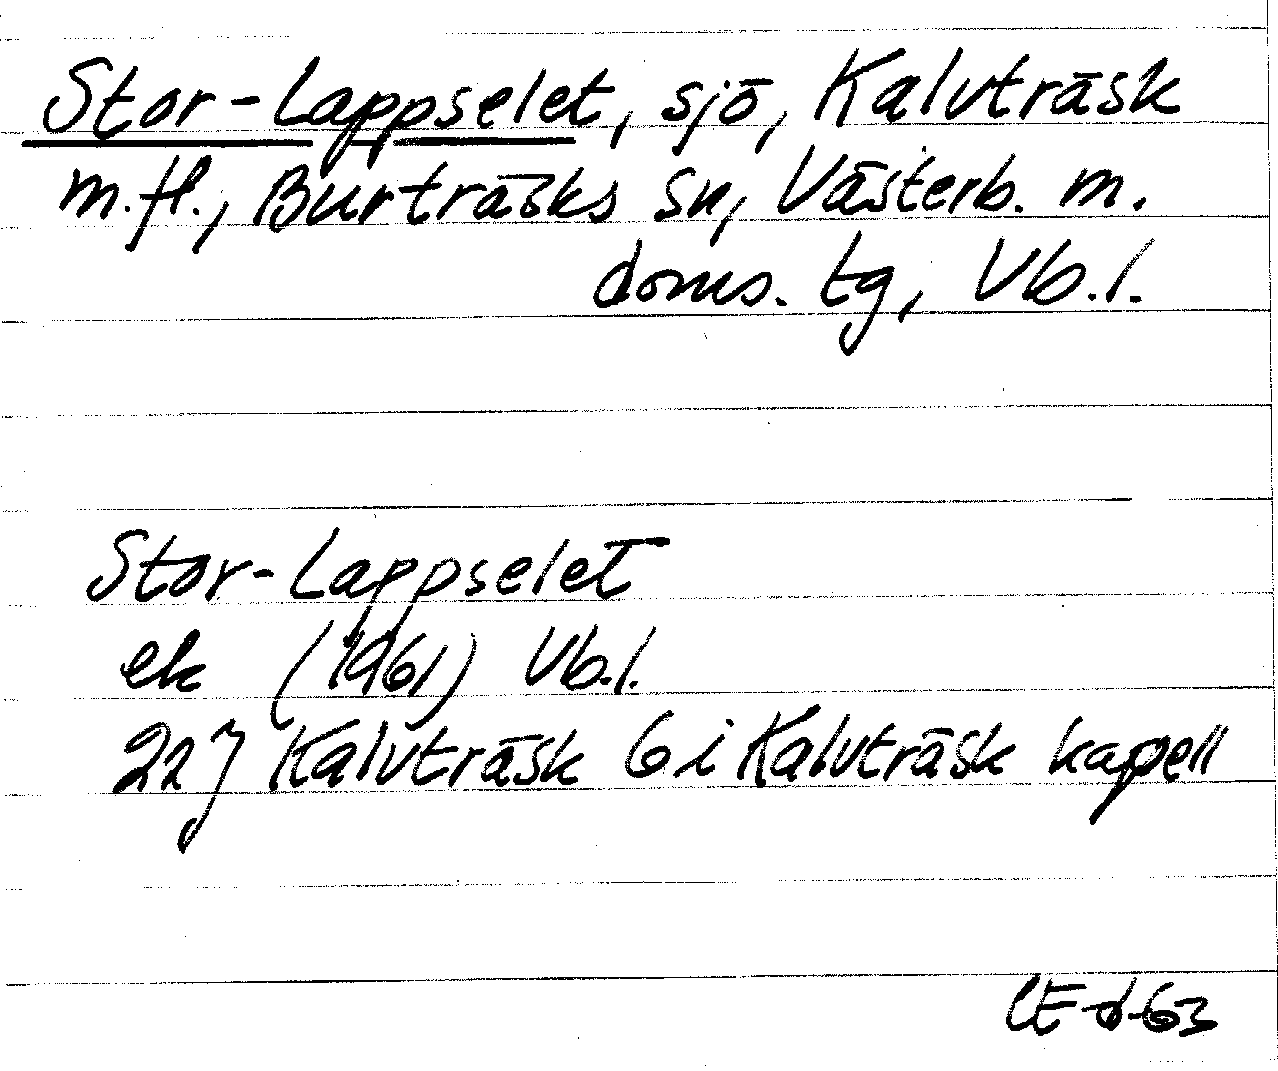 Stor-Lappselet, sjö, Kalvträsk
m.fl., Burträsks sn, Västerb. m.
doms. tg, Vb.l.
Stor-Lappselet
ek (1961) Vb.l.
22J Kalvträsk 6 i Kalvträsk kapell